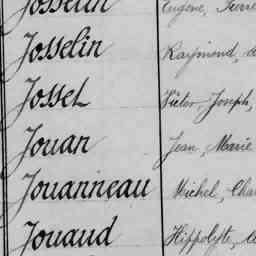 Josselin Eugène, Pierre
Josselin Raymond,
Josset Victor, Joseph,
Jouan Jean, Marie
Jouanneau Michel, Cha
Jouaud Hippolyte,